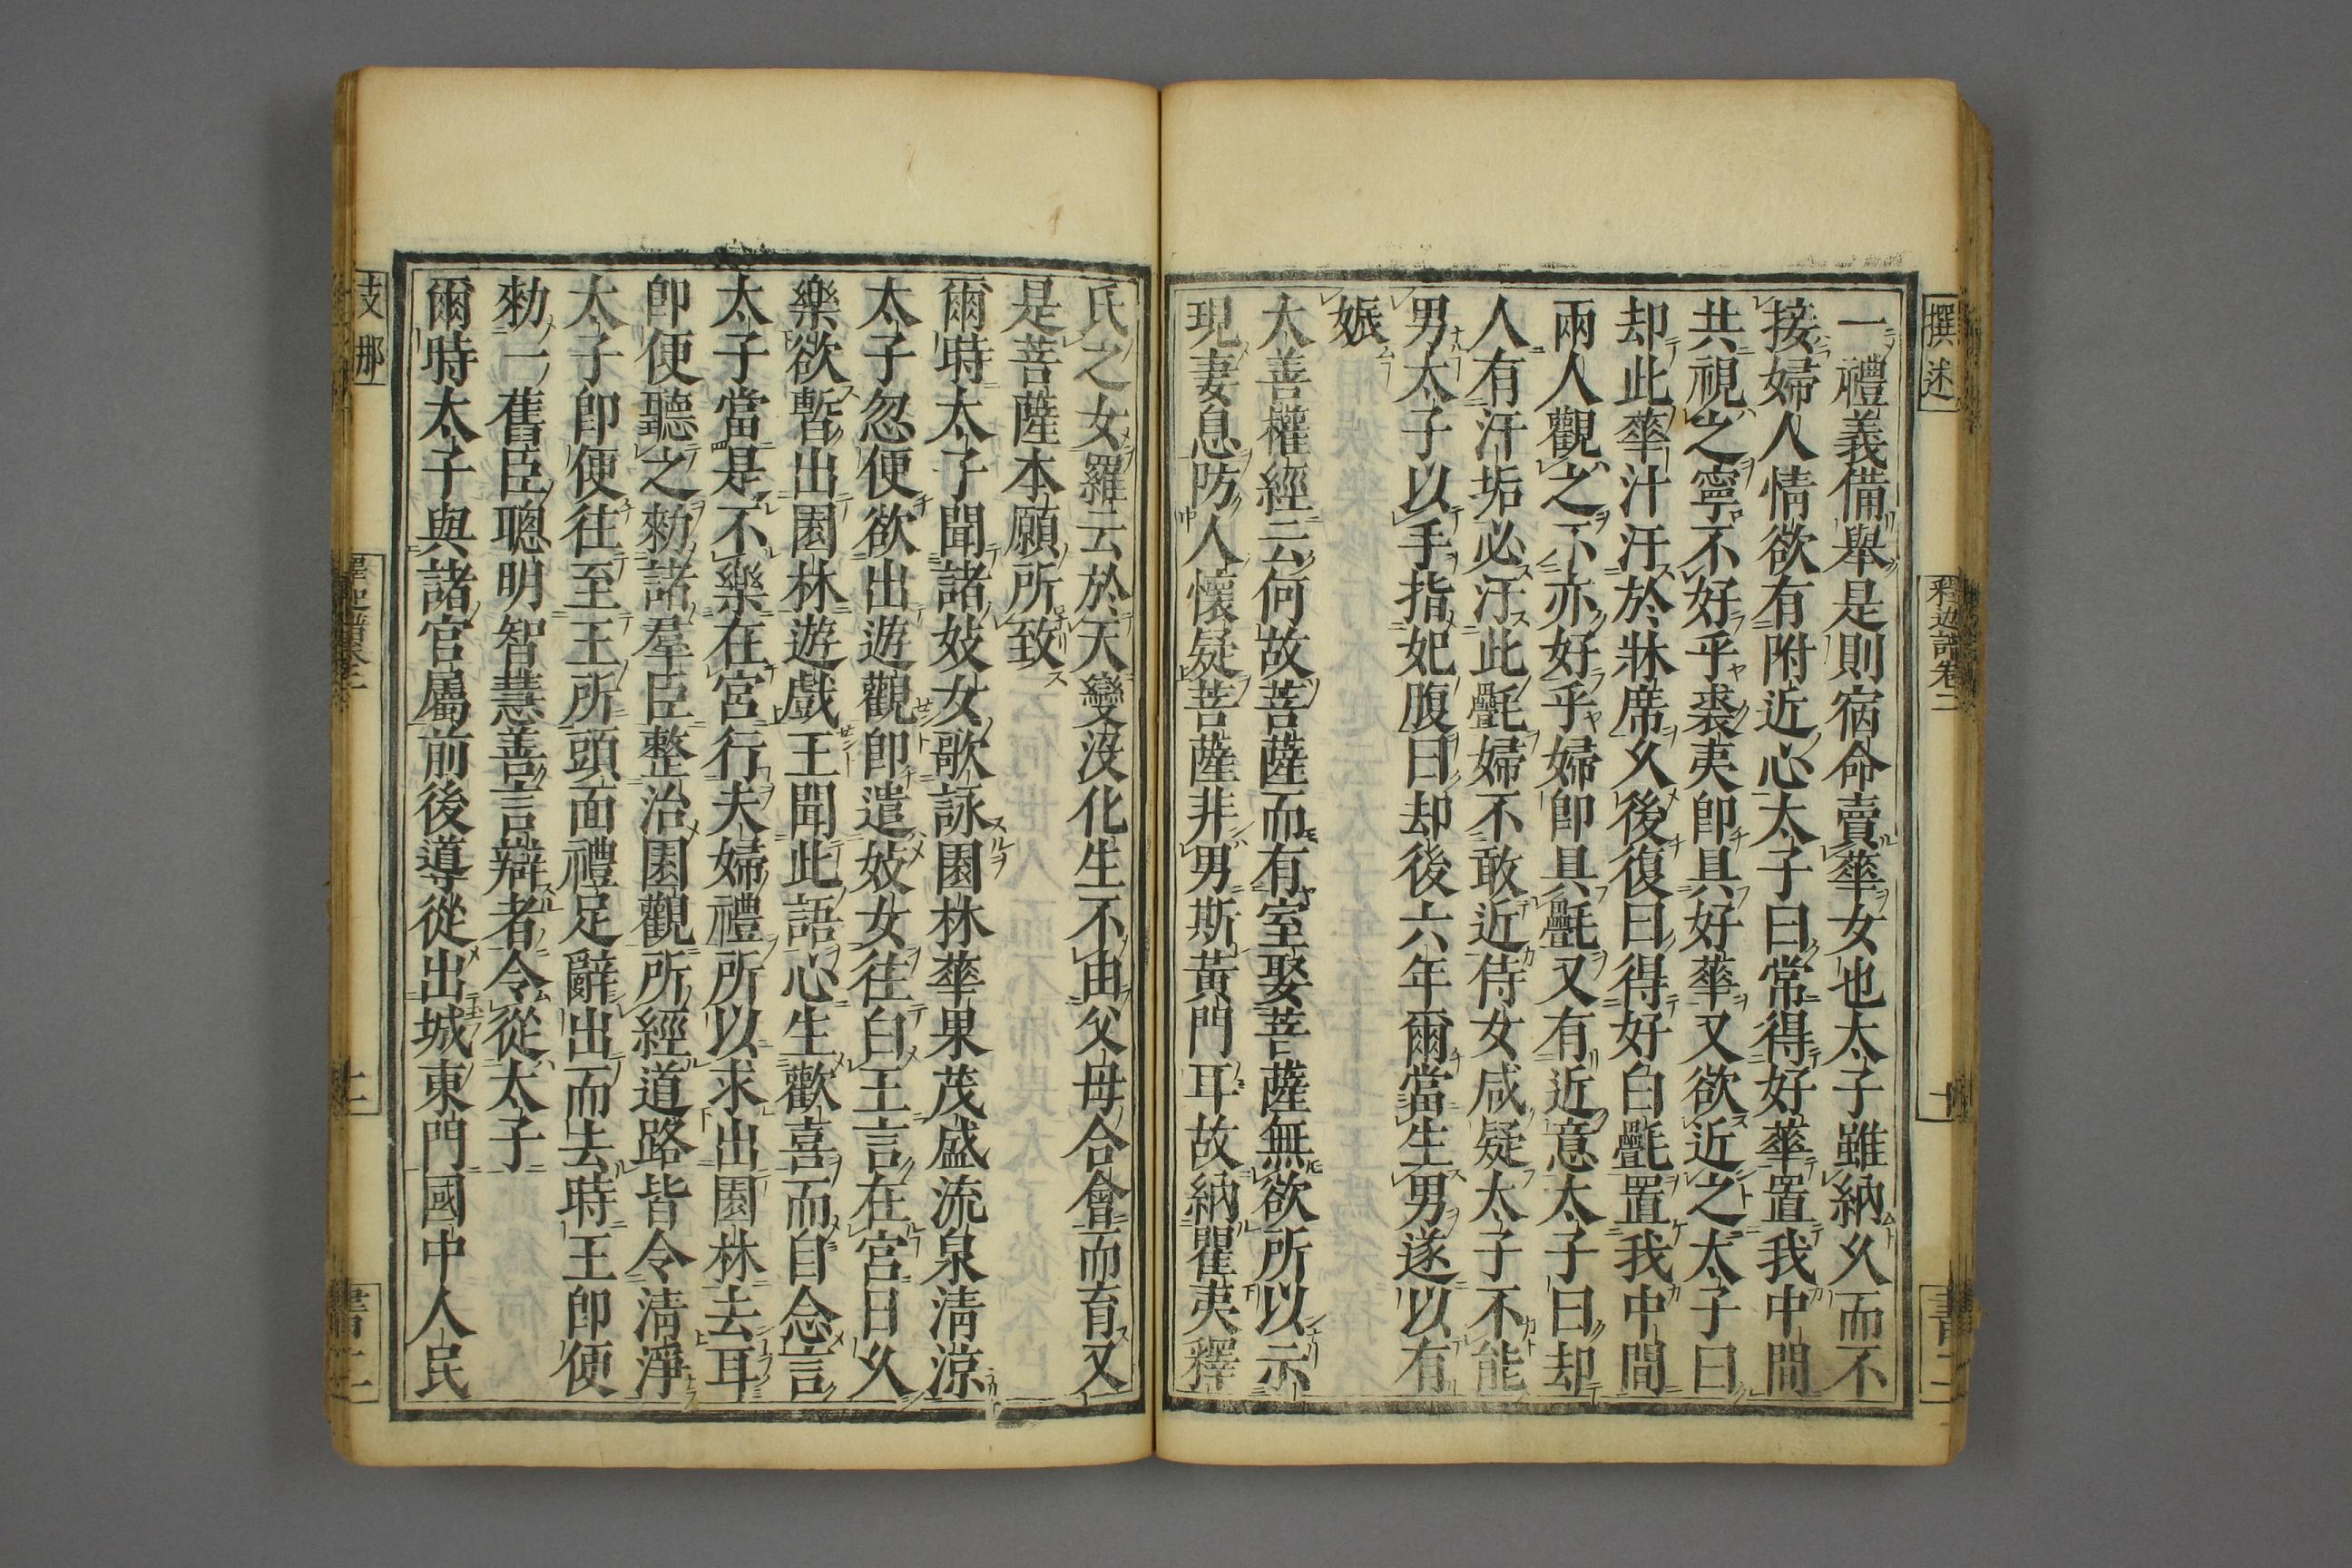 撰述
釋迦譜卷二
十
書二
一禮義備舉是則宿命賣華女也太子雖納久而不
接婦人情欲有附近心太子曰常得好華置我中間
共視之寧不好乎裘夷即具好華又欲近之太子曰
却此華汁汙於牀席久後復曰得好白㲲置我中間
兩人觀之不亦好乎婦即具㲲又有近意太子曰却
人有汙垢必汙此㲲婦不敢近侍女咸疑太子不能
男太子以手指妃腹曰却後六年爾當生男遂以有
娠
大善權經云何故菩薩而有室娶菩薩無欲所以示
現妻息防人懷疑菩薩非男斯黃門耳故納瞿夷釋
氏之女羅云於天變沒化生不由父母合會而育又
是菩薩本願所致
爾時太子聞諸妓女歌詠園林華果茂盛流泉清涼
太子忽便欲出遊觀即遣妓女往白王言在宮日久
樂欲暫出園林遊戲王聞此語心生歡喜而自念言
太子當是不樂在宮行夫婦禮所以求出園林去耳
即便聽之勑諸羣臣整治園觀所經道路皆令清淨
太子即便往至王所頭面禮足辭出而去時王即便
勑一舊臣聰明智慧善言辯者令從太子
爾時太子與諸官屬前後導從出城東門國中人民
支那